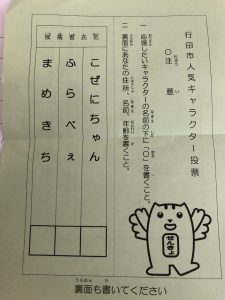 行田市人気キャラクター投票
〇注意
ちゅうい
一 応援したいキャラクターの名前の下に「〇」を書くこと。
二 裏面にあなたの住所、名前、年齢を書くこと。
候補者氏名
こぜにちゃん
ふらべぇ
まめきち
せんきょ
うらめん か
裏面も書いてください